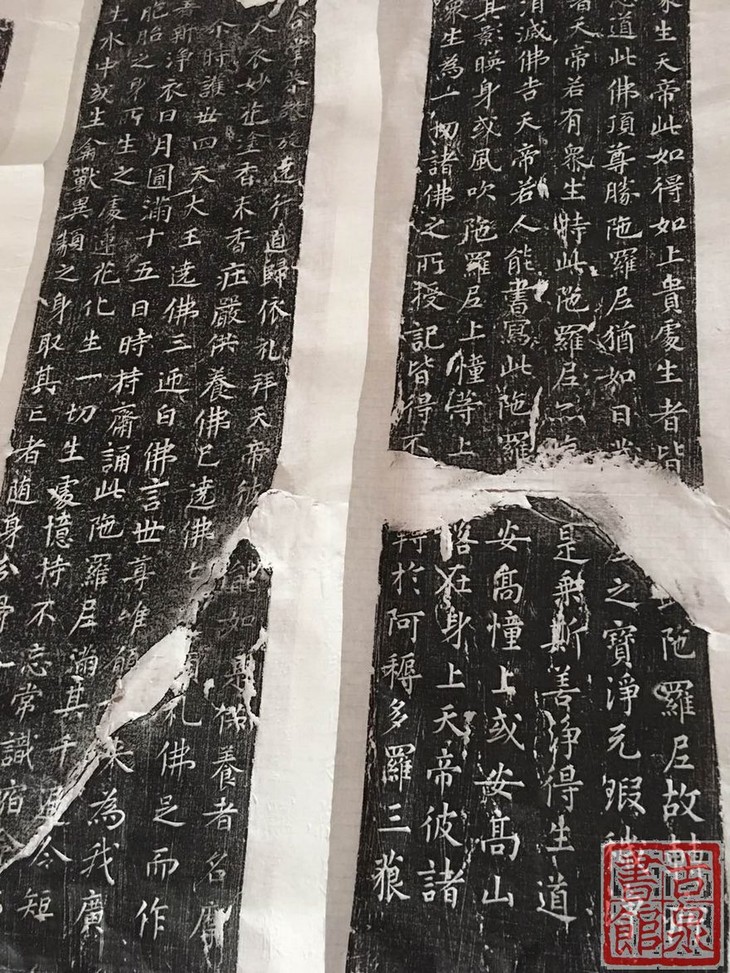 眾生天帝此如得如上貴處生者皆 陁羅尼故
道此佛頂尊勝陁羅尼猶如日 之寶淨无瑕
者天帝若有眾生 此陁羅尼 是乘斯善淨得生道
消滅佛告天帝若人能書寫此陁羅 安高幢上或安高山
其影暎身或風吹陁羅尼上幢等上 落在身上天帝彼諸
眾生為一切諸佛之所授記皆得不 轉於阿耨多羅三藐
行道歸依礼拜天帝彼 能如是供養者名摩
衣妙花塗香末香莊嚴供養佛已遶佛七 礼佛足而作
尒時護世四天大王遶佛三迊白佛言世尊唯願 來為我廣
新淨衣日月圓滿十五日時持齋誦此陁羅尼滿其千遍令短
胞胎之身所生之處蓮花化生一切生處憶持不忘常識宿命
生水中或生禽獸異類之身取其亡者随身分骨
古泉書館